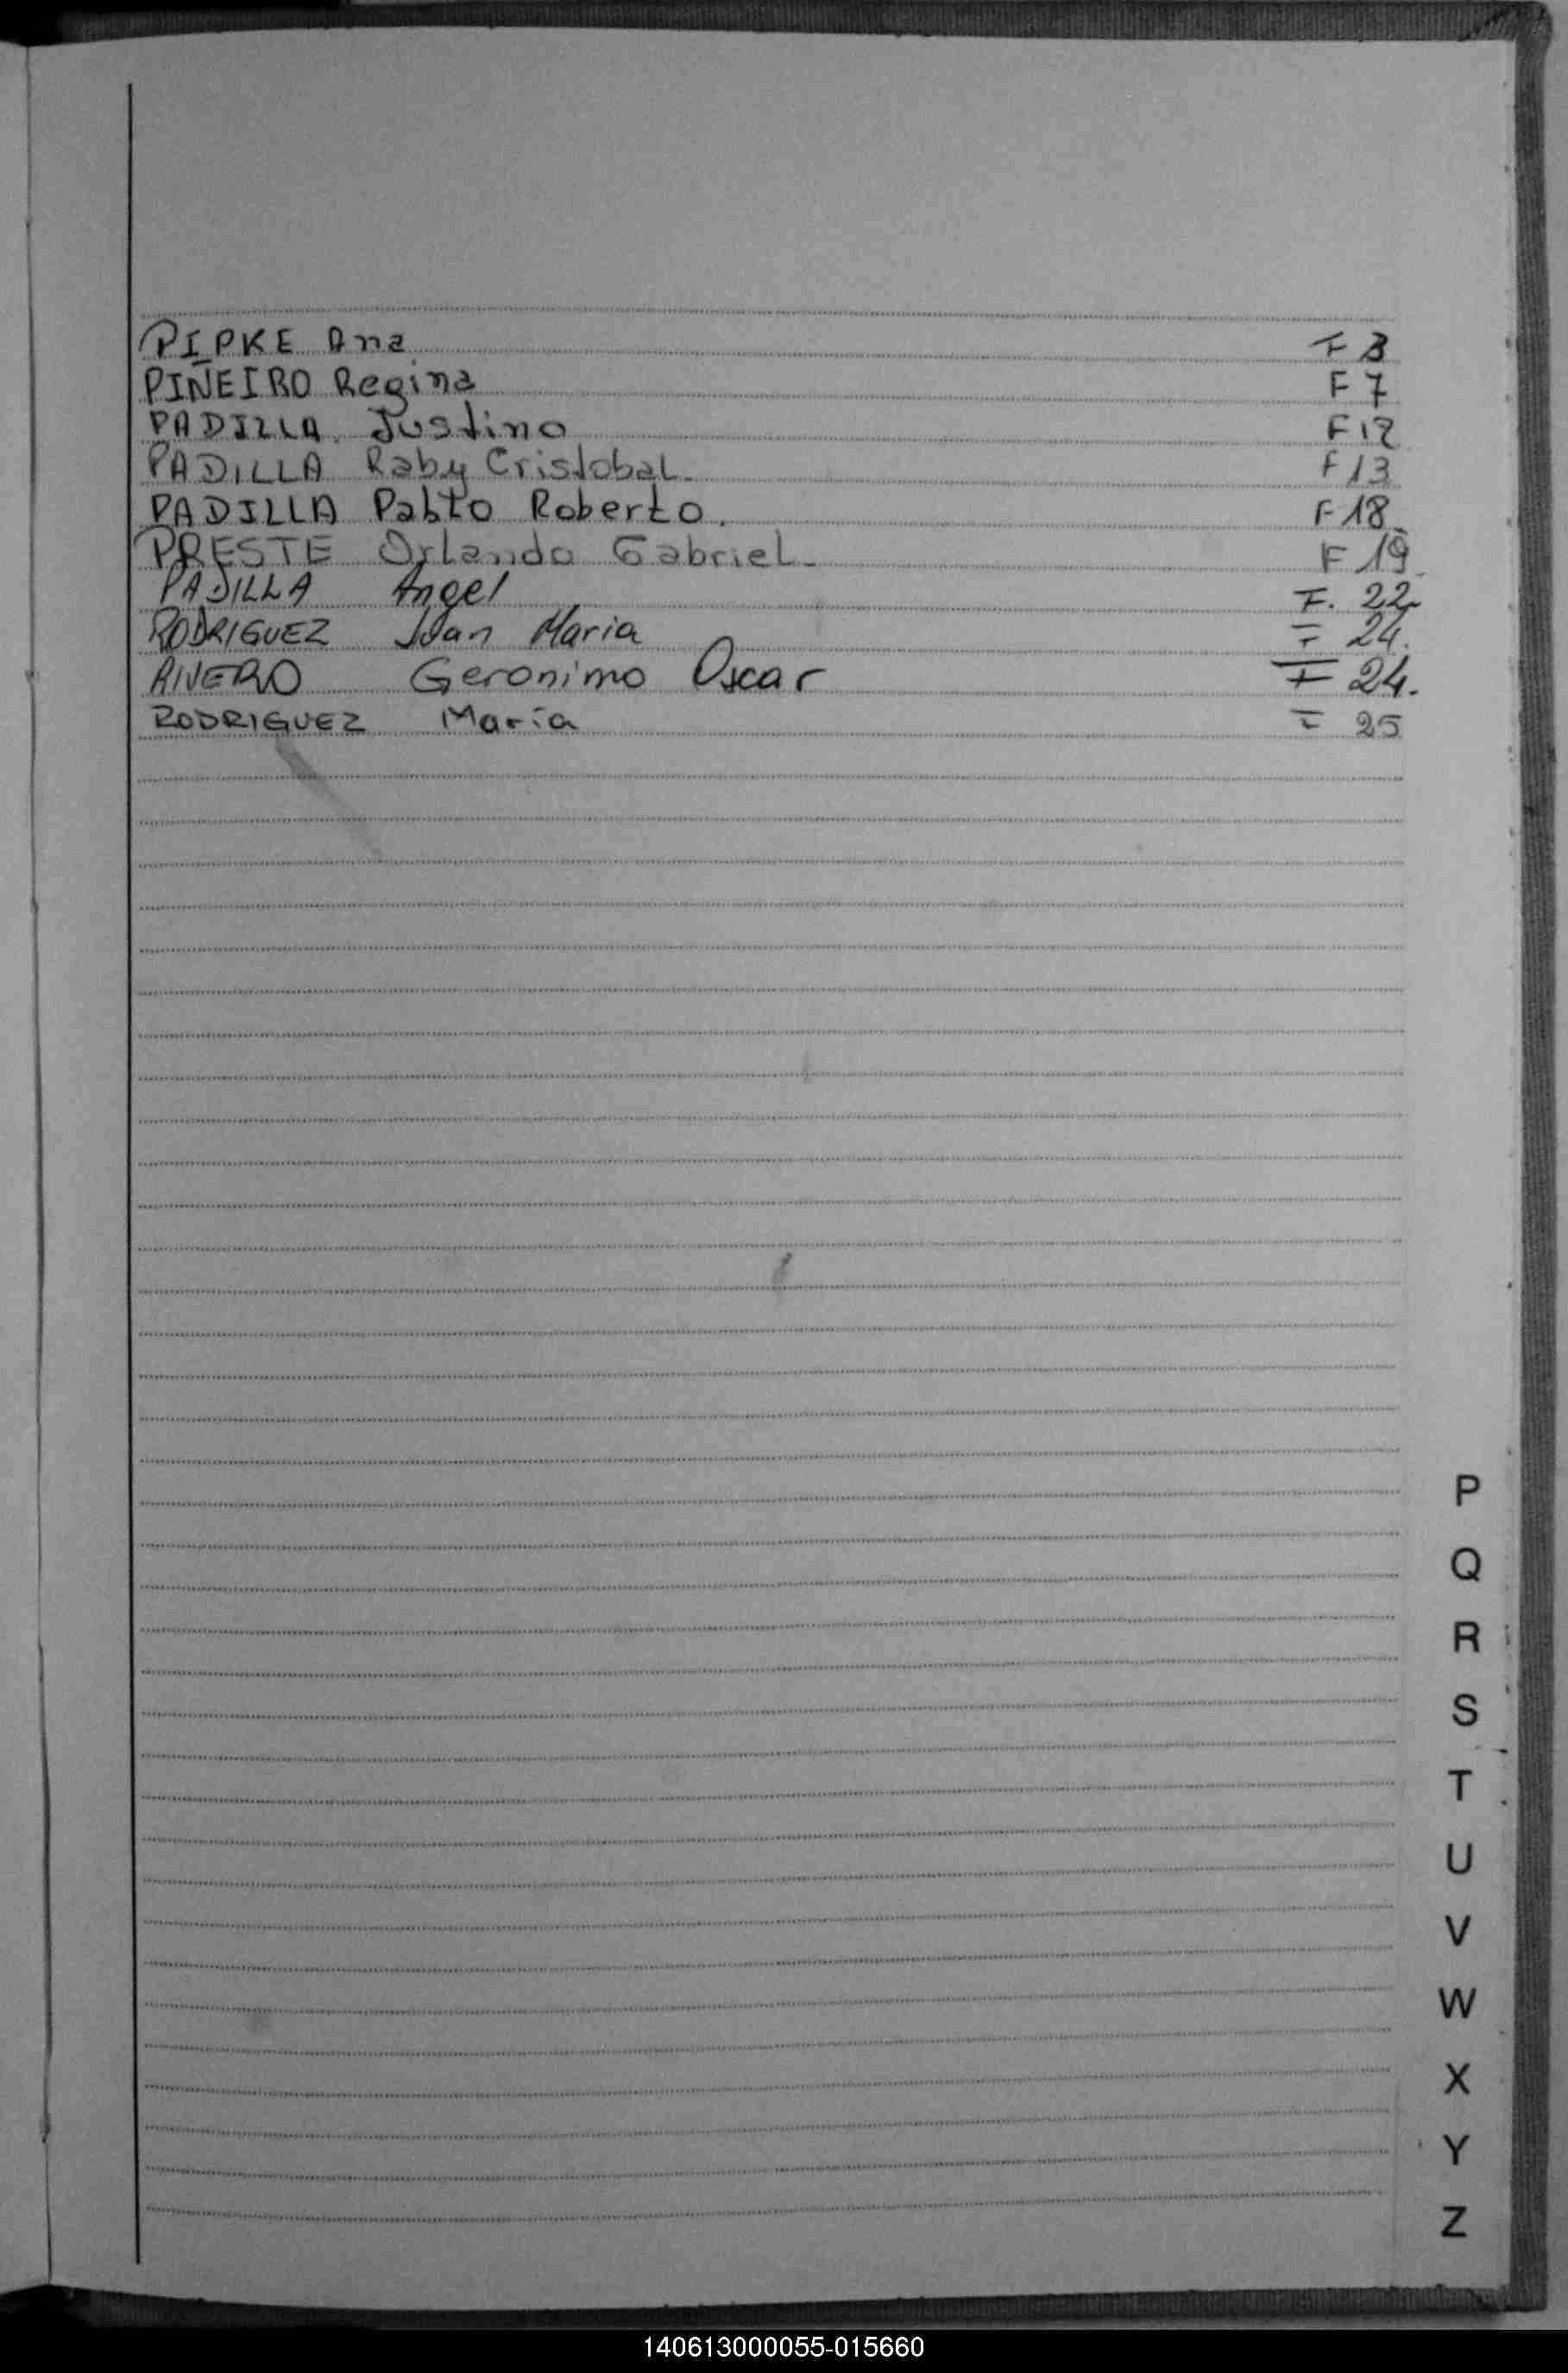 PIPKE Ana F 3
PIÑEIRO Regina F 7
PADILLA Justino F 12
PADILLA Raby Cristobal. F 13
PADILLA Pablo Roberto. F 18
PRESTE Orlando Gabriel F 19
PADILLA Angel F. 22
RODRIGUEZ Juan Maria F 24.
RIVERO Geronimo Oscar F 24.
RODRIGUEZ Maria F 25
P
Q
R
S
T
U
V
W
X
Y
Z
140613000055-015660